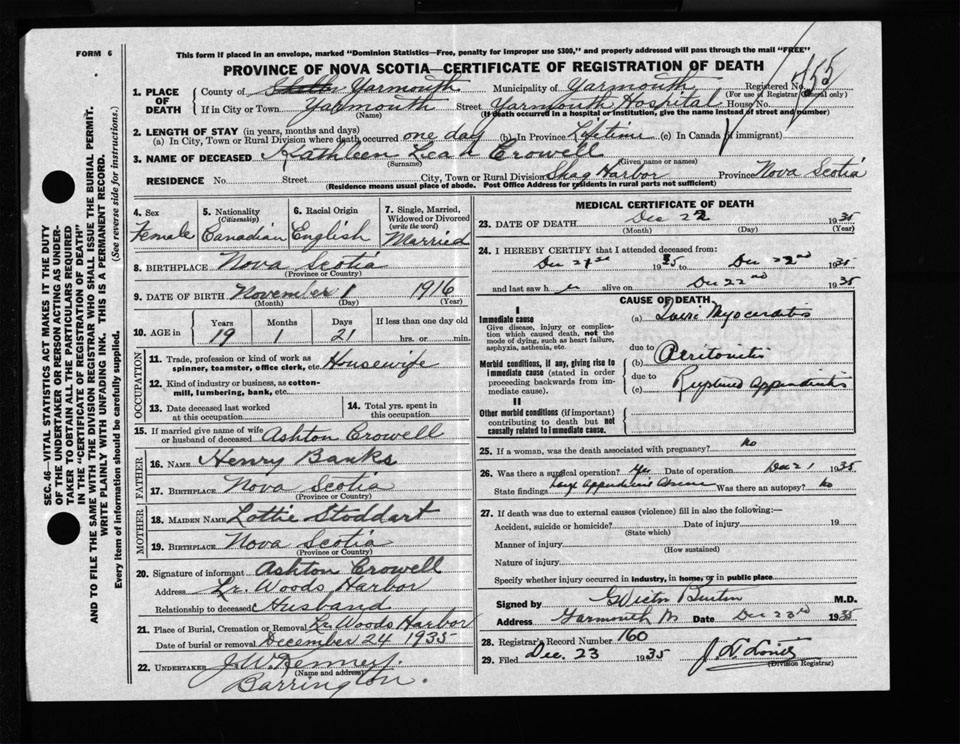 FORM 6
This form if placed in an envelope, marked "Dominion Statistics—Free, penalty for improper use $300," and properly addressed will pass through the mail "FREE"
PROVINCE OF NOVA SCOTIA—CERTIFICATE OF REGISTRATION OF DEATH
SEC. 46—VITAL STATISTICS ACT MAKES IT THE DUTY
OF THE UNDERTAKER OR PERSON ACTING AS UNDER-
TAKER TO OBTAIN ALL THE PARTICULARS REQUIRED
IN THE "CERTIFICATE OF REGISTRATION OF DEATH"
AND TO FILE THE SAME WITH THE DIVISION REGISTRAR WHO SHALL ISSUE THE BURIAL PERMIT.
WRITE PLAINLY WITH UNFADING INK. THIS IS A PERMANENT RECORD.
Every item of information should be carefully supplied. (See reverse side for instructions.)
1. PLACE OF DEATH
County of Shelb Yarmouth Municipality of Yarmouth Registered No. 155
(For use of Registrar General only)
If in City or Town Yarmouth Street Yarmouth Hospital House No.
(Name) (If death occurred in a hospital or institution, give the name instead of street and number)
2. LENGTH OF STAY (in years, months and days)
(a) In City, Town or Rural Division where death occurred one day (b) In Province Lifetime (c) In Canada (if immigrant)
3. NAME OF DECEASED Kathleen Leah Crowell
(Surname) (Given name or names)
RESIDENCE No. Street City, Town or Rural Division Shag Harbor Province Nova Scotia
(Residence means usual place of abode. Post Office Address for residents in rural parts not sufficient)
4. Sex
Female
5. Nationality
(Citizenship)
Canadian
6. Racial Origin
English
7. Single, Married,
Widowed or Divorced
(write the word)
Married
8. BIRTHPLACE Nova Scotia
(Province or Country)
9. DATE OF BIRTH November 1 1916
(Month) (Day) (Year)
10. AGE in
Years Months Days If less than one day old
19 1 21 hrs. or min.
OCCUPATION
11. Trade, profession or kind of work as
spinner, teamster, office clerk, etc. Housewife
12. Kind of industry or business, as cotton-
mill, lumbering, bank, etc.
13. Date deceased last worked
at this occupation
14. Total yrs. spent in
this occupation
15. If married give name of wife
or husband of deceased Ashton Crowell
FATHER
16. NAME Henry Banks
17. BIRTHPLACE Nova Scotia
(Province or Country)
MOTHER
18. MAIDEN NAME Lottie Stoddart
19. BIRTHPLACE Nova Scotia
(Province or Country)
20. Signature of informant Ashton Crowell
Address Lr. Woods Harbor
Relationship to deceased Husband
21. Place of Burial, Cremation or Removal Lr. Woods Harbor
Date of burial or removal December 24 1935
22. UNDERTAKER J. W.
(Name and address)
Barrington.
MEDICAL CERTIFICATE OF DEATH
23. DATE OF DEATH Dec 22 1935
(Month) (Day) (Year)
24. I HEREBY CERTIFY that I attended deceased from:
Dec 21st 1935 to Dec 22nd 1935
and last saw h er alive on Dec 22nd 1935
CAUSE OF DEATH
I
Immediate cause
Give disease, injury or complica-
tion which caused death, not the
mode of dying, such as heart failure,
asphyxia, asthenia, etc.
(a) Toxic Myocarditis
due to
Morbid conditions, if any, giving rise to
immediate cause (stated in order
proceeding backwards from im-
mediate cause).
(b) Peritonitis
due to
(c) Ruptured Appendicitis
II
Other morbid conditions (if important)
contributing to death but not
causally related to immediate cause.
25. If a woman, was the death associated with pregnancy? No
26. Was there a surgical operation? Yes Date of operation Dec 21 1935
State findings Large Appendiceal Abscess Was there an autopsy? No
27. If death was due to external causes (violence) fill in also the following:—
Accident, suicide or homicide? Date of injury 19
(State which)
Manner of injury
(How sustained)
Nature of injury
Specify whether injury occurred in industry, in home, or in public place
Signed by G Victor Burton M.D.
Address Yarmouth NS Date Dec 23rd 1935
28. Registrar's Record Number 160
29. Filed Dec. 23 1935
(Division Registrar)